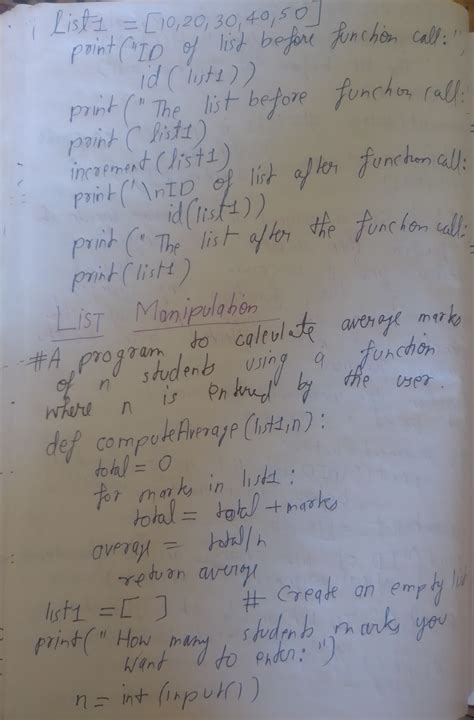 List1 = [10,20,30,40,50]
print("ID of list before function call:",
id(list1))
print(" The list before function call:
print( list1)
increment(list1)
print("\nID of list after function call:
id(list1))
print(" The list after the function call:
print(list1)
LIST Manipulation
#A program to calculate average marks
of n students using a function
where n is entered by the user.
def computeAverage(list1,n):
total = 0
for marks in list1:
total = total + marks
average = total/n
return average
list1 = [ ] # Create an empty
print(" How many students marks you
want to enter:")
n = int (input())